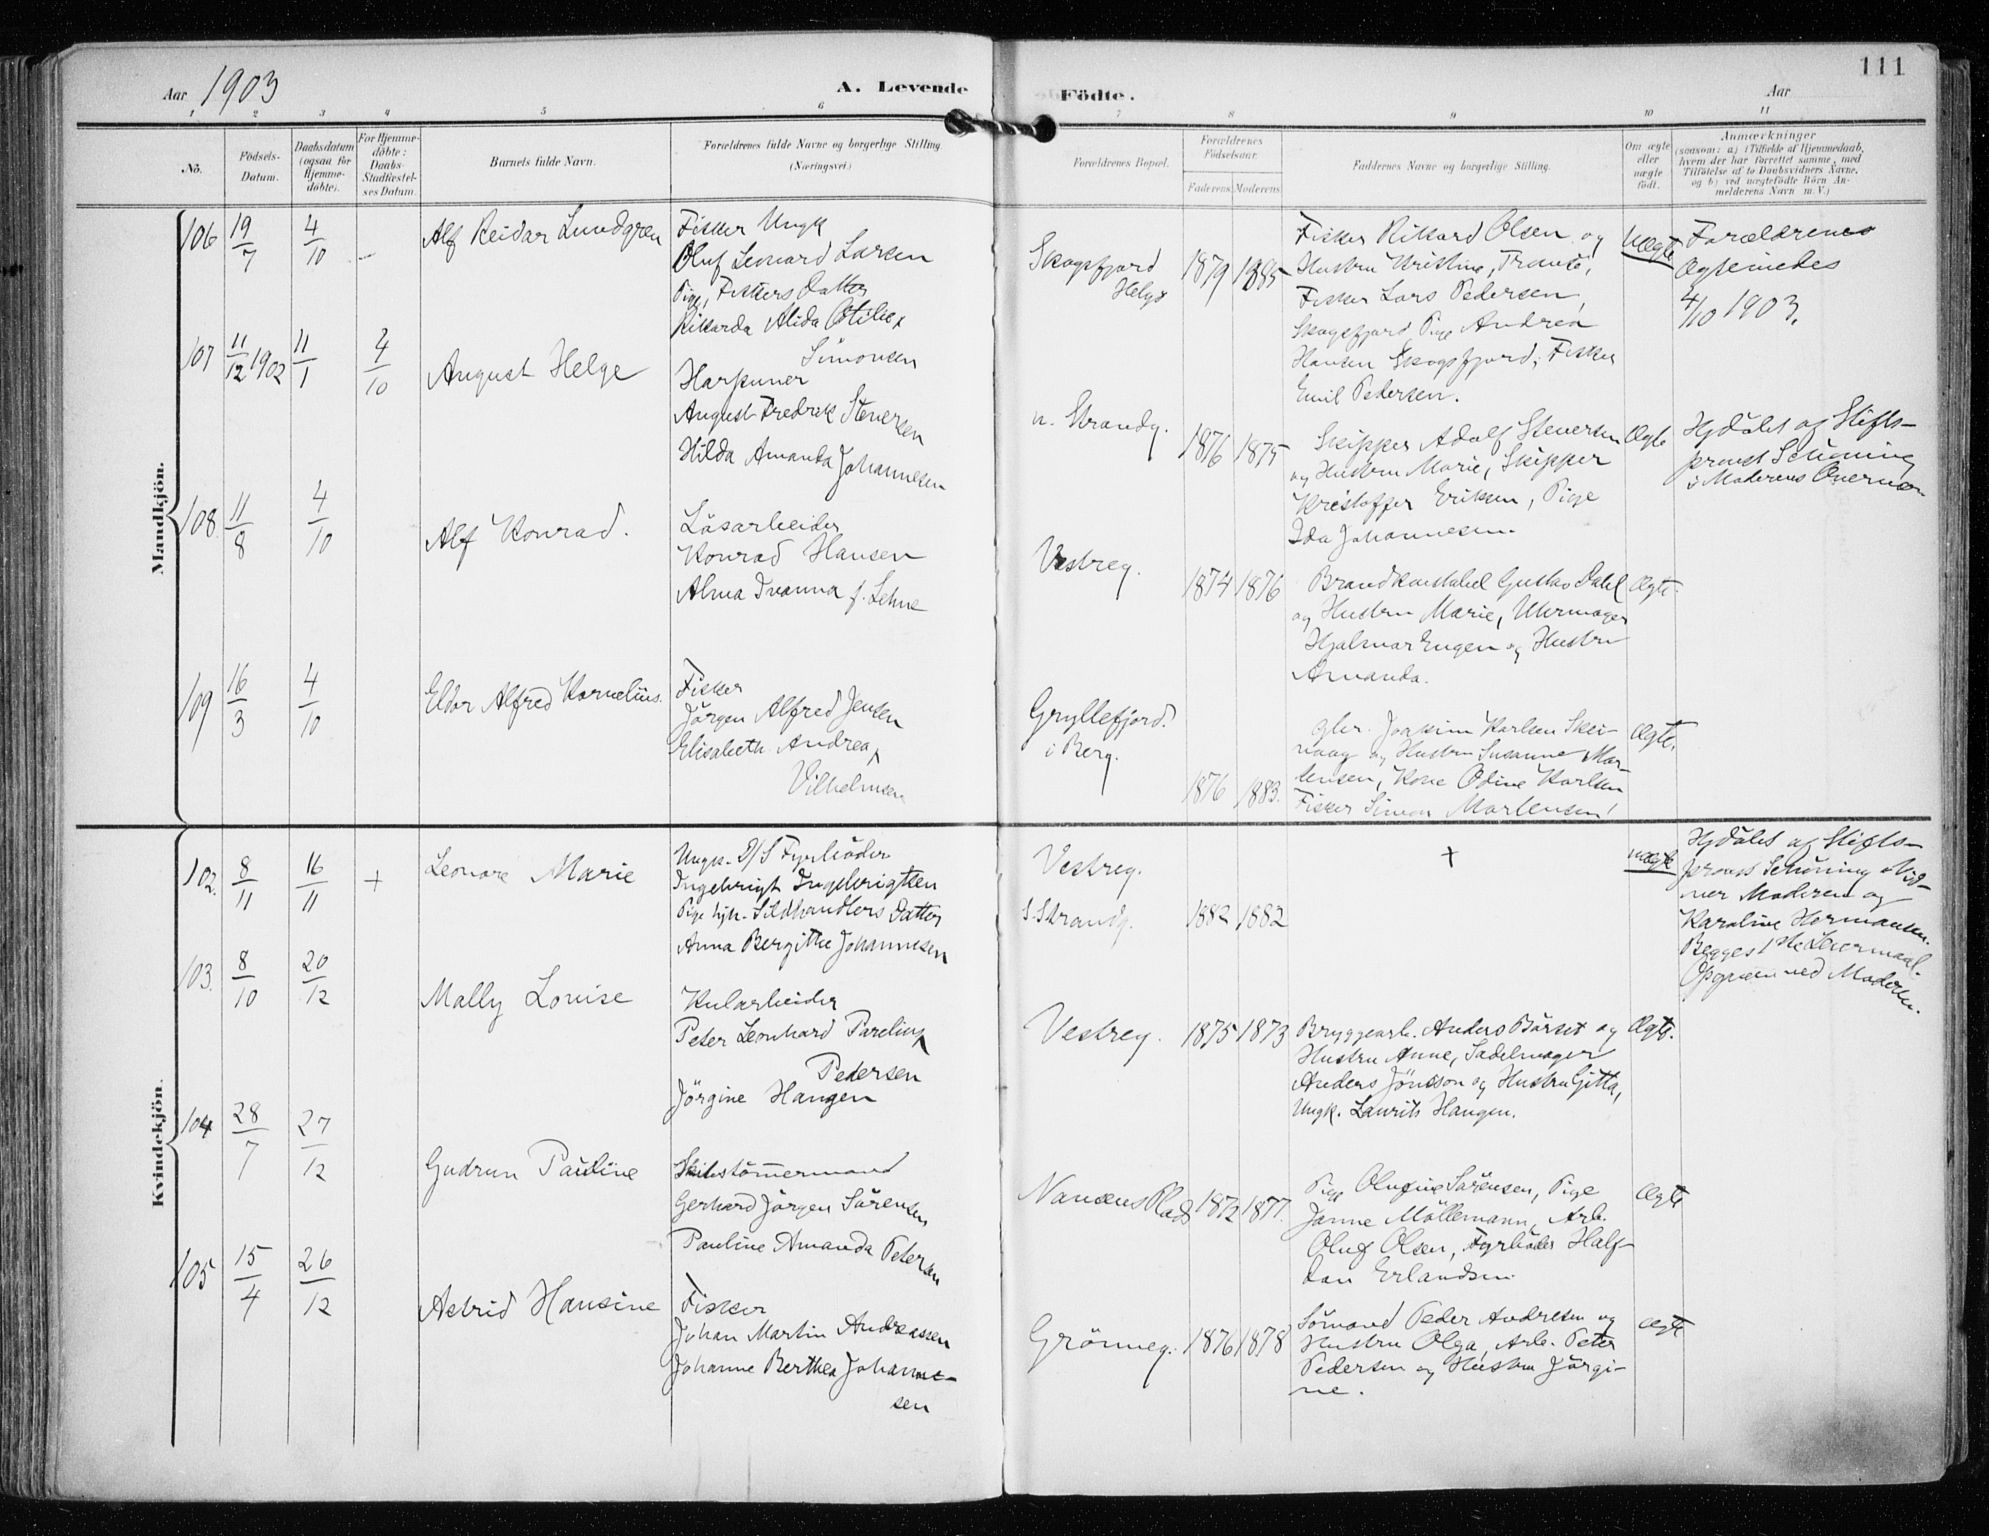 111
Aar 1903
A. Levende Födte.
Aar
1 2 3 4 5 6 7 8 9 10 11
No.
Födsels-Datum.
Daabsdatum (ogsaa for Hjemme-döbte).
For Hjemme-döbte: Daabs-Stadfæstel-ses Datum.
Barnets fulde Navn.
Forældrenes fulde Navne og borgerlige Stilling. (Næringsvei.)
Forældrenes Bopæl.
Forældrenes Födselsaar.
Faderens Moderens
Faddernes Navne og borgerlige Stilling.
Om ægte eller uægte födt.
Anmærkninger
(saasom: a) i Tilfælde af Hjemmedaab,
hvem der har forrettet samme, med
Tilföielse af to Daabsvidners Navne.
og b) ved uægtefödte Börn An-
melderens Navn m.V.)
Mandkjön.
106 19/7 4/10 – Alf Reidar Lundgren
Fisker Ungk
Oluf Leonard Larsen
Pige, Fiskers Datter
Rikarda Alida Otilie
Simonsen
Skogsfjord
Helgø
1879 1885
Fisker Rikard Olsen og
Hustru Kristine,
Fisker Lars Pedersen,
Skogsfjord Pige Andrea
Hansen Skogsfjord, Fisker
Emil Pedersen.
Uægte
Forældrenes
Ægteviedes
4/10 1903.
107 11/12 1902 11/1 4/10 August Helge
Harpuner
August Fredrik Stenersen
Hilda Amanda Johannesen
n. Strandg.
1876 1875
Skipper Adolf Stenersen
og Hustru Marie, Skipper
Kristoffer Eriksen, Pige
Ida Johannesen.
Ægte
Hjdøbt af Stifts-
provst Schöning
i Moderens Nærvær
108 11/8 4/10 Alf Konrad.
Lösarbeider
Konrad Hansen
Alma Ivanna f. Lehne
Vestreg.
1874 1876
Brandkonstabel Gustav Dahl
og Hustru Marie, Uhrmager
Hjalmar Eugen og Hustru
Amanda.
Ægte.
109 16/3 4/10 Eldor Alfred Kornelius.
Fisker
Jörgen Alfred Jensen
Elisabeth Andrea
Vilhelmsen
Gryllefjord.
i Berg.
1876 1883.
Gbr. Joakim Karlsen Skei-
vaag og Hustru Susanne Mor-
tensen, Kone Odine Karlsen
Fisker Simon Mortensen
Ægte.
Kvindekjön.
102. 8/11 16/11 + Leonore Marie
Ungk. D/S Fyrböder
Ingebrigt Ingebrigtsen
Pige hjh. Sildhandlers Datter
Anna Bergithe Johannesen
Vestreg.
S. Strandg.
1882 1882
+
uægte
Hjdöbt af Stifts-
provst Schöning Vid-
ner Moderen og
Karoline Hermansen.
Begges 1ste Leiermaal.
Opgiven ved Moderen.
103. 8/10 20/12 Mally Louise
Kularbeider
Peter Leonhard Parelius
Pedersen
Jörgine Haugen
Vestreg.
1875 1873
Bryggearb. Anders Börset og
Hustru Anne, Sadelmager
Anders Jönsson og Hustru Gitta,
Ungk. Laurits Haugen.
Ægte.
104 28/7 27/12 Gudrun Pauline
Skibstömmermand
Gerhard Jörgen Sörensen
Pauline Amanda Petersen
Nansens Plads
1872 1877.
Pige Olufine Sörensen, Pige
Janne Möllemann, Arb.
Oluf Olsen, Fyrböder Half-
dan Erlandsen
Ægte
105 15/4 26/12 Astrid Hansine
Fisker
Johan Martin Andreassen
Johanne Berthea Johanne-
sen
Grönneg.
1876 1878
Sömand Peder Andresen og
Hustru Olga, Arb. Peter
Pedersen og Hustru Jörgi-
ne.
Ægte